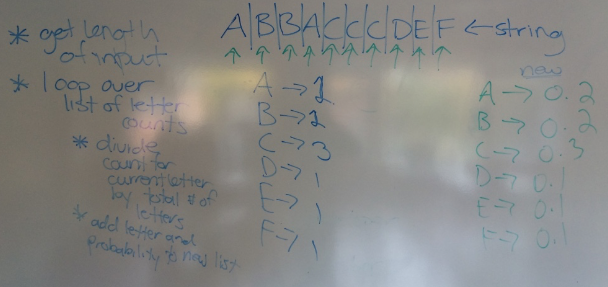 * get length
of input
A|B|B|A|C|C|C|D|E|F ← string
↑ ↑ ↑ ↑ ↑ ↑ ↑ ↑ ↑ ↑
* loop over
list of letter
counts
* divide
count for
current letter
by total # of
letters
* add letter and
probability to new list
A → 2
B → 2
C → 3
D → 1
E → 1
F → 1
new
A → 0.2
B → 0.2
C → 0.3
D → 0.1
E → 0.1
F → 0.1